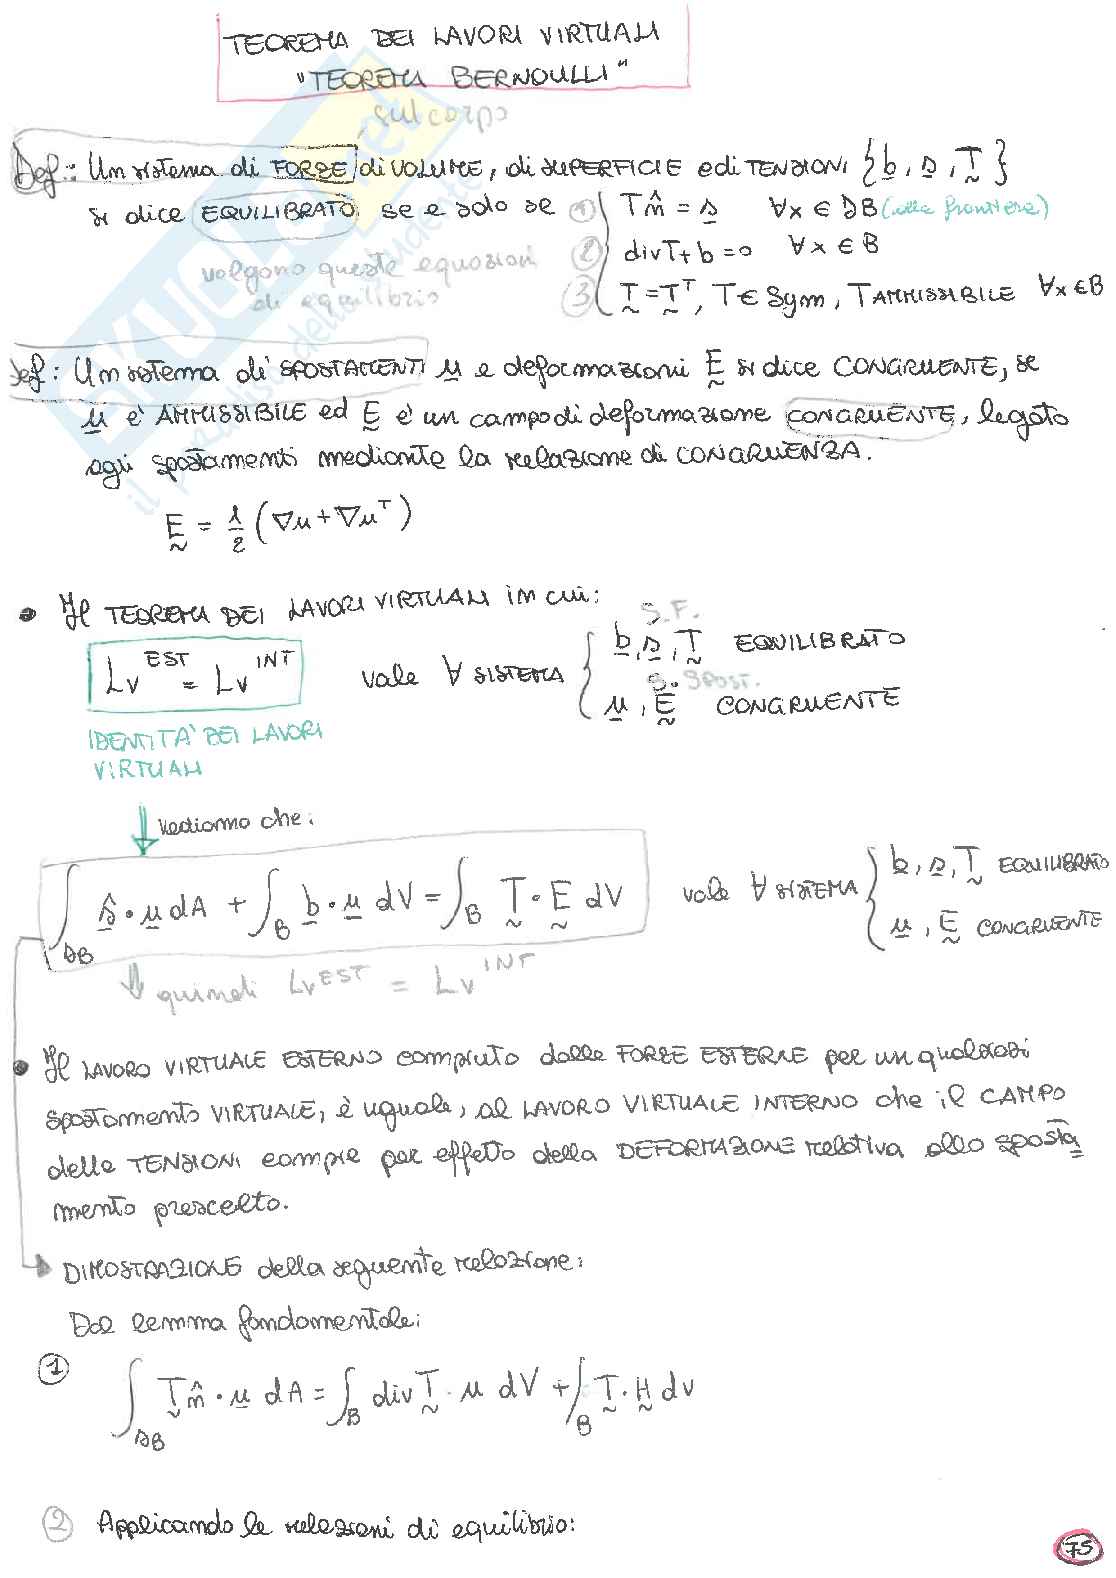 TEOREMA DEI LAVORI VIRTUALI
"TEOREMA BERNOULLI"
sul corpo
Def: Un sistema di FORZE di VOLUME, di SUPERFICIE e di TENSIONI {b, s, T}
si dice EQUILIBRATO se e solo se ① T n̂ = s ∀x ∈ ∂B (alla frontiera)
② divT + b = 0 ∀x ∈ B
valgono queste equazioni
di equilibrio
③ T = Tᵀ, T ∈ Sym, T AMMISSIBILE ∀x ∈ B
Def: Un sistema di SPOSTAMENTI u e deformazioni E si dice CONGRUENTE, se
u è AMMISSIBILE ed E è un campo di deformazione CONGRUENTE, legato
agli spostamenti mediante la relazione di CONGRUENZA.
E = 1/2 (∇u + ∇uᵀ)
• Il TEOREMA DEI LAVORI VIRTUALI in cui:
S.F.
Lv^EST = Lv^INT vale ∀ SISTEMA { b, s, T EQUILIBRATO
S. SPOST.
u, E CONGRUENTE
IDENTITA' DEI LAVORI
VIRTUALI
↓ Vediamo che:
∫∂B ŝ · u dA + ∫B b · u dV = ∫B T · E dV vale ∀ SISTEMA { b, s, T EQUILIBRATO
u, E CONGRUENTE
↓ quindi Lv^EST = Lv^INT
• Il LAVORO VIRTUALE ESTERNO compiuto dalle FORZE ESTERNE per un qualsiasi
spostamento VIRTUALE, è uguale, al LAVORO VIRTUALE INTERNO che il CAMPO
delle TENSIONI compie per effetto della DEFORMAZIONE relativa allo sposta
mento prescelto.
DIMOSTRAZIONE della seguente relazione:
Dal lemma fondamentale:
① ∫∂B T n̂ · u dA = ∫B div T · u dV + ∫B T · H dv
② Applicando le relazioni di equilibrio:
75